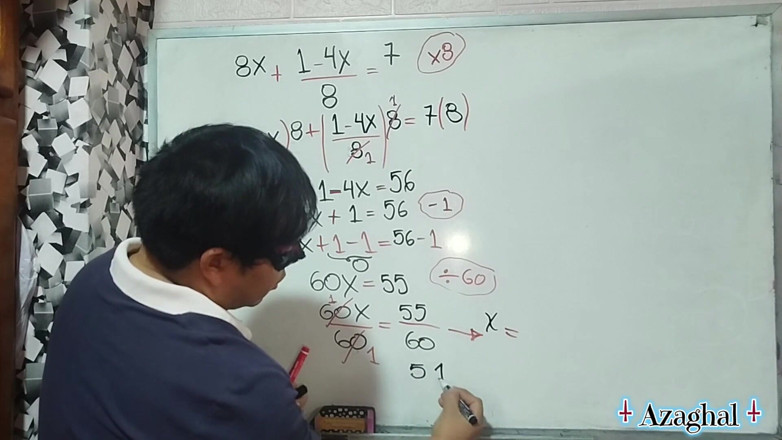 8x + (1-4x)/8 = 7 ×8
)8 + ((1-4x)/8 1) 8 1 = 7(8)
1-4x = 56
x + 1 = 56 -1
x + 1 - 1 = 56 - 1
0
60x = 55 ÷60
60x 1/60 1 = 55/60 → x =
5 1
Azaghal